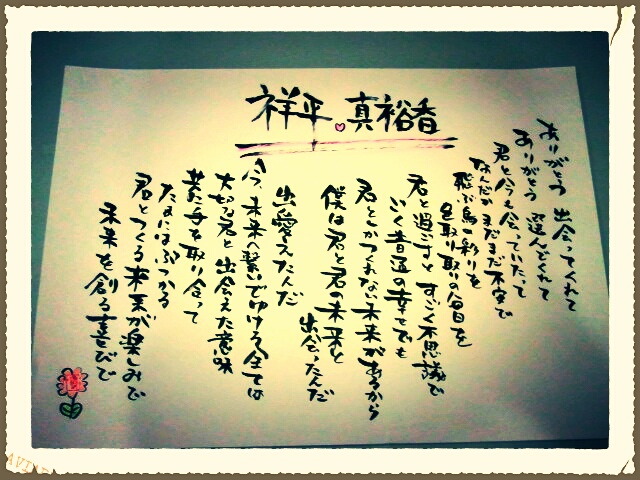 祥平 真裕香
ありがとう 出会ってくれて
ありがとう 選んでくれて
君と今も会っていたって
なんだかまだまだ不安で
飛ぶ鳥 彩りを
色取り取りの毎日を
君と過ごすと すごく不思議で
ごく普通の幸せでも
君としかつくれない未来があるから
僕は君と君の未来と
出会ったんだ
出愛えたんだ
今、未来へ繋いでゆける全ては
大切な君と出会えた意味
共に手を取り合って
たまにはぶつかる
君とつくる未来が楽しみで
未来を創る喜びで